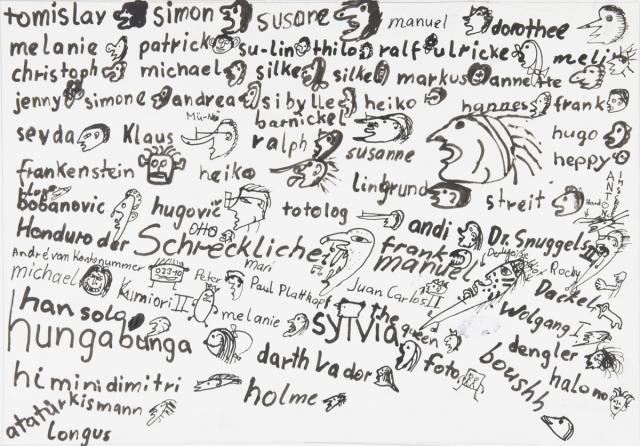 tomislav simon susanne manuel dorothee
melanie patrick su-lin thilo ralf ulricke melis
christoph michael silke silke markus annette
jenny simone andrea sibylle heiko hannes frank
barnickel
sevda Klaus ralph susanne hugo
heppy
frankenstein heiko lindgrund streit
bobanovic hugovič totolog andi Dr. Snuggels
OTTO
Honduro der Schreckliche frank
manuel
André van Kontonummer mari Rocky
michael Kumiori II Peter Paul Plattkopf Juan Carlos II Dackel
han solo melanie sylvia the queen Wolgang I
hungabunga darth vador foto dengler
boushh halono
himinidimitri holme
atatürkismann
Longus